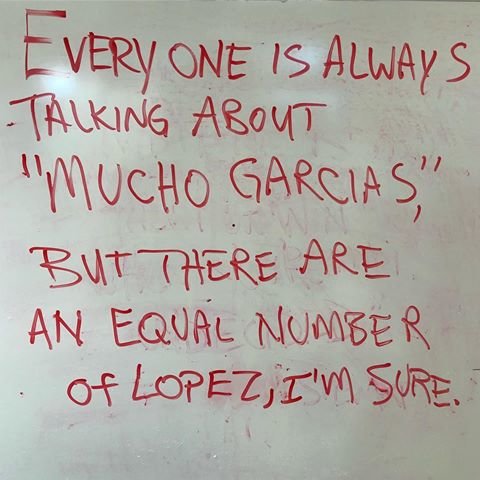 EVERY ONE IS ALWAYS
TALKING ABOUT
"MUCHO GARCIAS,"
BUT THERE ARE
AN EQUAL NUMBER
OF LOPEZ, I'M SURE.